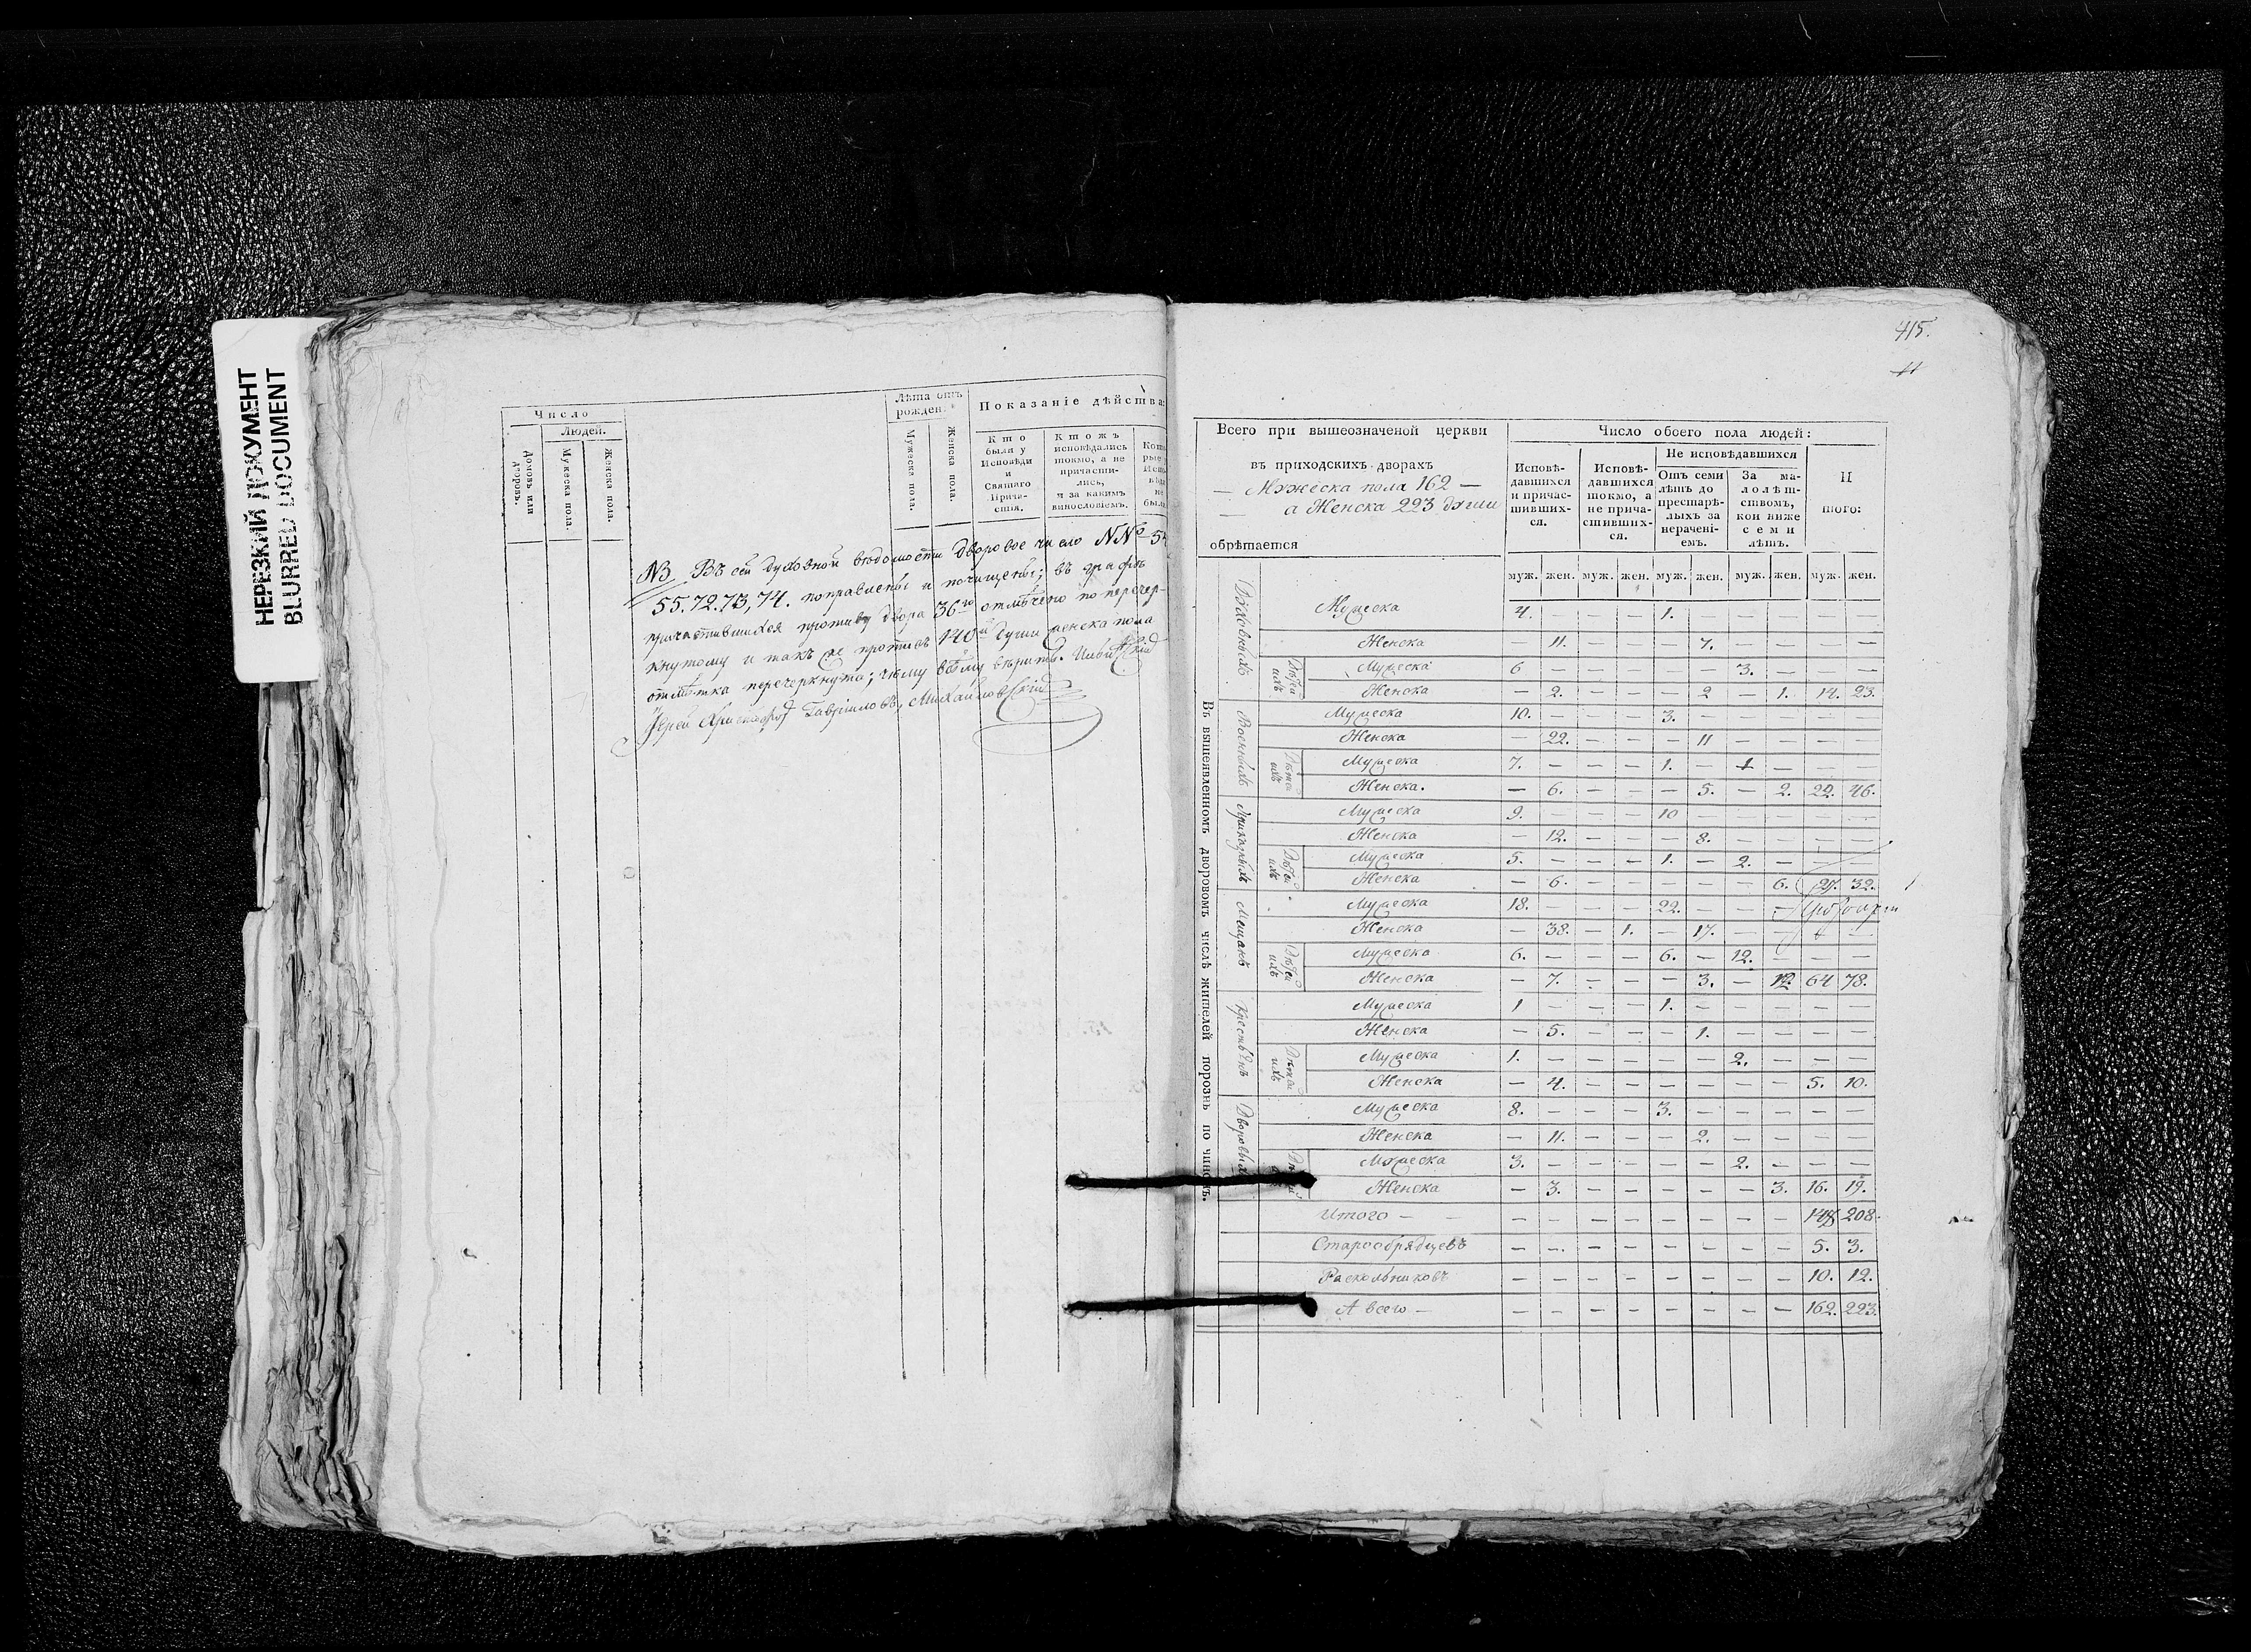 НЕРЕЗКИЙ ДОКУМЕНТ
BLURRED DOCUMENT
Число
Людей.
Домовъ или дворовъ.
Мужеска пола.
Женска пола.
Лѣта отъ рожден.
Мужеска пола.
Женска пола.
Показаніе дѣйства:
Кто были у Исповѣди и Святаго Прича-стія.
Ктожъ исповѣдались токмо, а не причасти-лись, и за какимъ винословіемъ.
NB Въ сей духовной вѣдомости дворовое число NNо 54
55. 72. 73, 74. поправлены и почищены; въ графѣ
причастившихся противу двора 36го отмѣчено по перечер-
кнутому и такъ же противъ 140й души женска пола
отмѣтка перечеркнута; чему всѣму вѣрить.
Іерей Христофор Гавріиловъ, Михайловскій
415.
11
Всего при вышеозначеной церкви
въ приходскихъ дворахъ
— Мужеска пола 162 —
— а Женска 223 души
обрѣтается
Число обоего пола людей:
Исповѣ-давшихся и причас-тивших-ся.
Исповѣ-давшихся токмо, а не прича-стивших-ся.
Не исповѣдавшихся
Отъ семи лѣтъ до престарѣ-лыхъ за нерачені-емъ.
За ма-лолѣт-ствомъ, кои ниже семи лѣтъ.
И того:
муж. жен. муж. жен. муж. жен. муж. жен. муж. жен.
Въ вышеявленномъ дворовомъ числѣ жителей порознь по чинамъ.
Духовныхъ
Мужеска 4. — — — 1. — — — — —
Женска — 11. — — — 7. — — — —
Дѣтей ихъ
Мужеска 6 — — — — — 3. — — —
Женска — 2. — — — 2 — 1. 14. 23.
Военныхъ
Мужеска 10. — — — 3. — — — — —
Женска — 22. — — — 11 — — — —
Дѣтей ихъ
Мужеска 7. — — — 1. — 1 — — —
Женска. — 6. — — — 5. — 2. 22. 46.
Приказныхъ
Мужеска 9. — — — 10 — — — — —
Женска — 12. — — — 8. — — — —
Дѣтей ихъ
Мужеска 5. — — — 1. — 2. — — —
Женска — 6. — — — — — 6. 27. 32.
Мещанъ
Мужеска 18. — — — 22. — — —
Женска — 38. — 1. — 17. — — — —
Дѣтей ихъ
Мужеска 6. — — — 6. — 12. — — —
Женска — 7. — — — 3. — 12. 64 78.
Крестьянъ
Мужеска 1 — — — 1. — — — — —
Женска — 5. — — — 1. — — — —
Дѣтей ихъ
Мужеска 1. — — — — — 2. — — —
Женска — 4. — — — — — — 5. 10.
Дворовыхъ
Мужеска 8. — — — 3. — — — — —
Женска — 11. — — — 2. — — — —
Мужеска 3. — — — — — 2. — — —
Женска — 3. — — — — — 3. 16. 19.
Итого — — — — — — — — — 208.
Старообрядцевъ — — — — — — — — 5. 3.
Раскольниковъ — — — — — — — — 10. 12.
А всего — — — — — — — — — 162. 223.